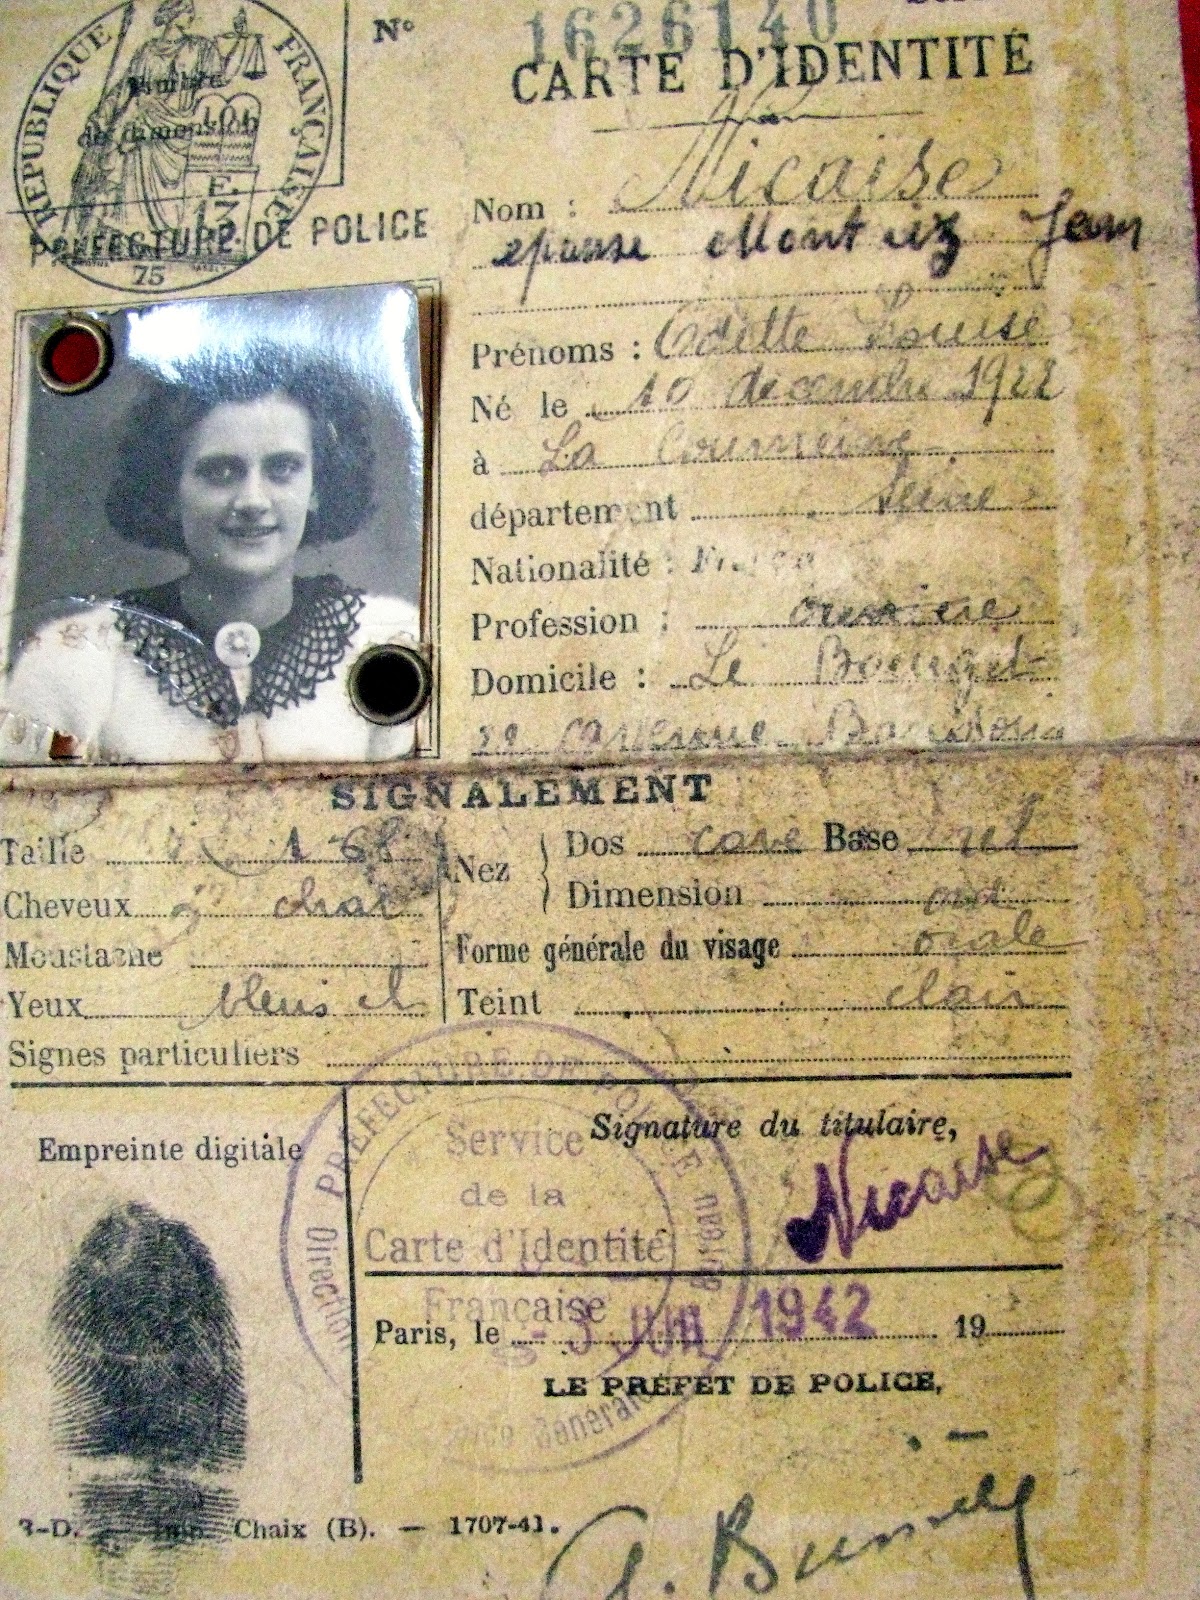 RÉPUBLIQUE FRANÇAISE
Timbre
de dimension
LOI
E.
13F
75
PRÉFECTURE DE POLICE
Nº 1626140
CARTE D'IDENTITÉ
Nom : Nicaise
epouse Jean
Prénoms : Odette Louise
Né le 10 decembre 1922
à La Courneuve
département Seine
Nationalité :
Profession : ouvrière
Domicile : Le Bourget
avenue
SIGNALEMENT
Taille 1 68
Cheveux chat
Moustache
Yeux bleus cl
Nez
Dos cave Base
Dimension
Forme générale du visage ovale
Teint clair
Signes particuliers
Empreinte digitale
PRÉFECTURE DE POLICE
Direction
Service
de la
Carte d'Identité
Française
Signature du titulaire,
Nicaise
Paris, le - 3 JUIN 1942 19
LE PRÉFET DE POLICE,
3-D. — Imp. Chaix (B). — 1707-41.